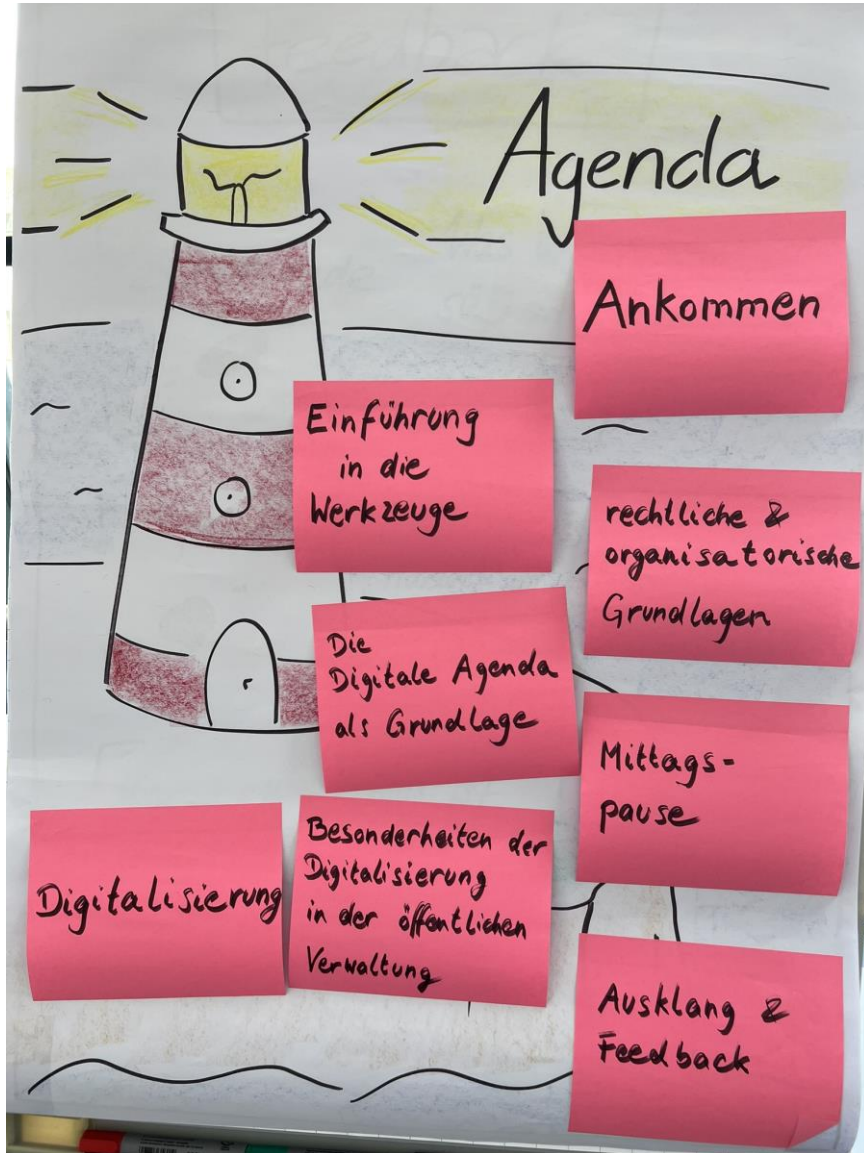 Agenda
Ankommen
Einführung
in die
Werkzeuge
rechtliche &
organisatorische
Grundlagen
Die
Digitale Agenda
als Grundlage
Mittags-
pause
Digitalisierung
Besonderheiten der
Digitalisierung
in der öffentlichen
Verwaltung
Ausklang &
Feedback